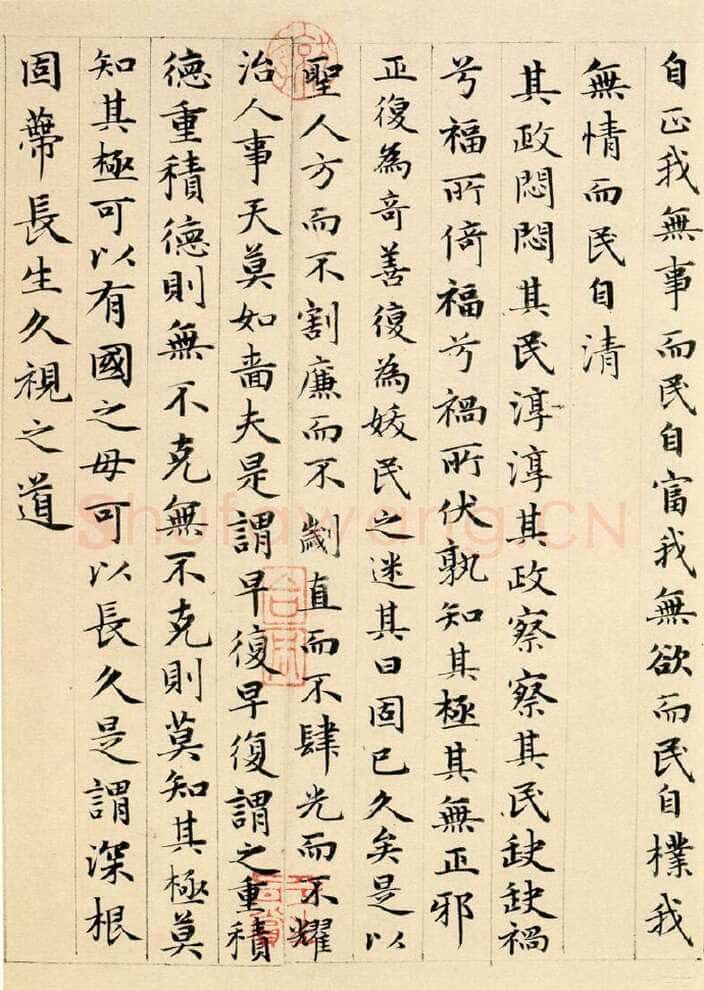 自正我無事而民自富我無欲而民自樸我
無情而民自清
其政悶悶其民淳淳其政察察其民缺缺禍
兮福所倚福兮禍所伏孰知其極其無正邪
正復為奇善復為妖民之迷其日固已久矣是以
聖人方而不割廉而不劌直而不肆光而不耀
治人事天莫如嗇夫是謂早復早復謂之重積
德重積德則無不克無不克則莫知其極莫
知其極可以有國之母可以長久是謂深根
固蔕長生久視之道
Shufawang.CN